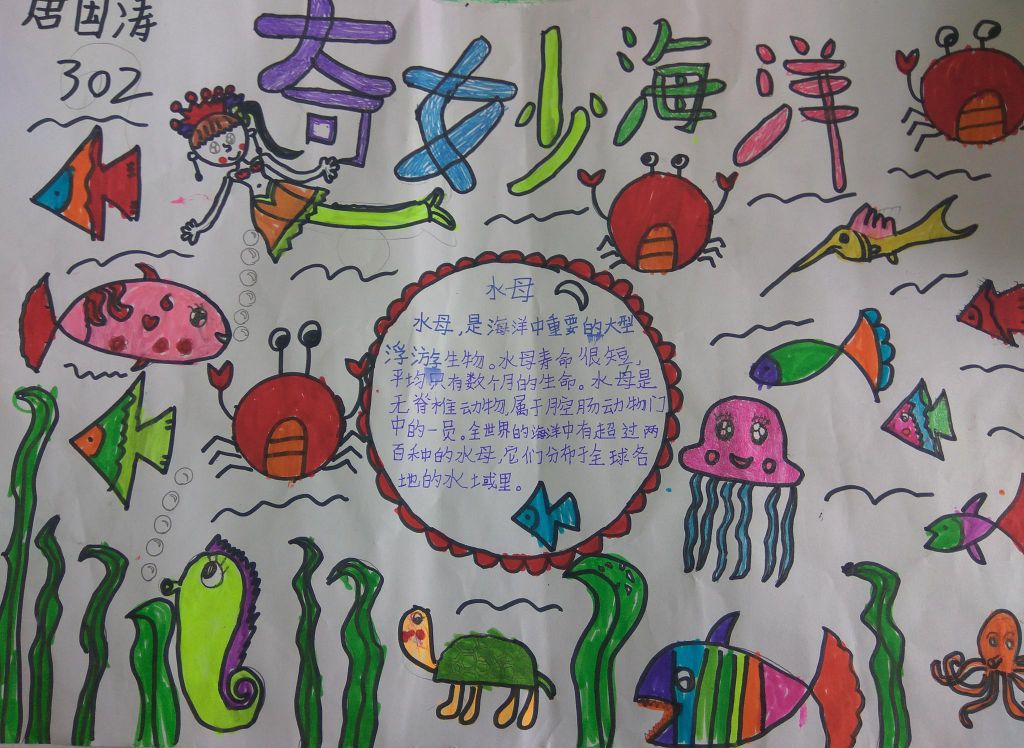 唐国涛
302
奇妙海洋
水母
水母,是海洋中重要的大型
浮游生物。水母寿命很短,
平均只有数个月的生命。水母是
无脊椎动物,属于腔肠动物门
中的一员。全世界的海洋中有超过两
百种的水母,它们分布于全球各
地的水域里。